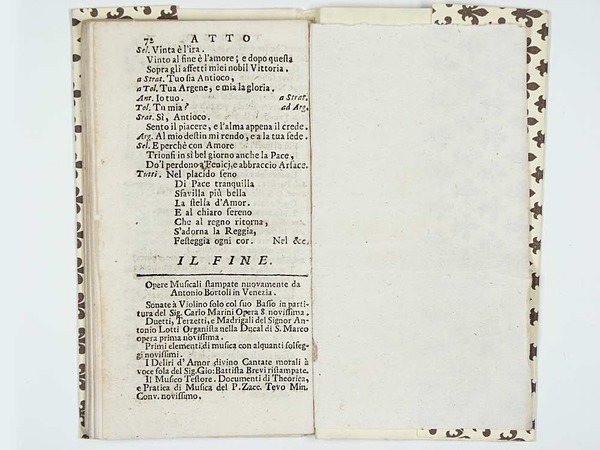 72 ATTO
Sel. Vinta è l'ira.
Vinto al fine è l'amore; e dopo questa
Sopra gli affetti miei nobil Vittoria.
a Strat. Tuo sia Antioco,
a Tol. Tua Argene, e mia la gloria.
Ant. Io tuo. a Strat.
Tol. Tu mia? ad Arg.
Strat. Sì, Antioco.
Sento il piacere, e l'alma appena il crede.
Arg. Al mio destin mi rendo, e a la tua fede.
Sel. E perchè con Amore
Trionfi in sì bel giorno anche la Pace,
Do'l perdono a Fenici, e abbraccio Arsace.
Tutti. Nel placido seno
Di Pace tranquilla
Sfavilla più bella
La stella d'Amor.
E al chiaro sereno
Che al regno ritorna,
S'adorna la Reggia,
Festeggia ogni cor. Nel &c.
IL FINE.
Opere Musicali stampate nuovamente da
Antonio Bortoli in Venezia.
Sonate à Violino solo col suo Basso in parti-
tura del Sig. Carlo Marini Opera 8. novissima.
Duetti, Terzetti, e Madrigali del Signor An-
tonio Lotti Organista nella Ducal di S. Marco
opera prima novissima.
Primi elementi di musica con alquanti solfeg-
gi novissimi.
I Deliri d'Amor divino Cantate morali à
voce sola del Sig. Gio: Battista Brevi ristampate.
Il Musico Testore. Documenti di Theorica,
e Pratica di Musica del P. Zacc. Tevo Min.
Conv. novissimo.